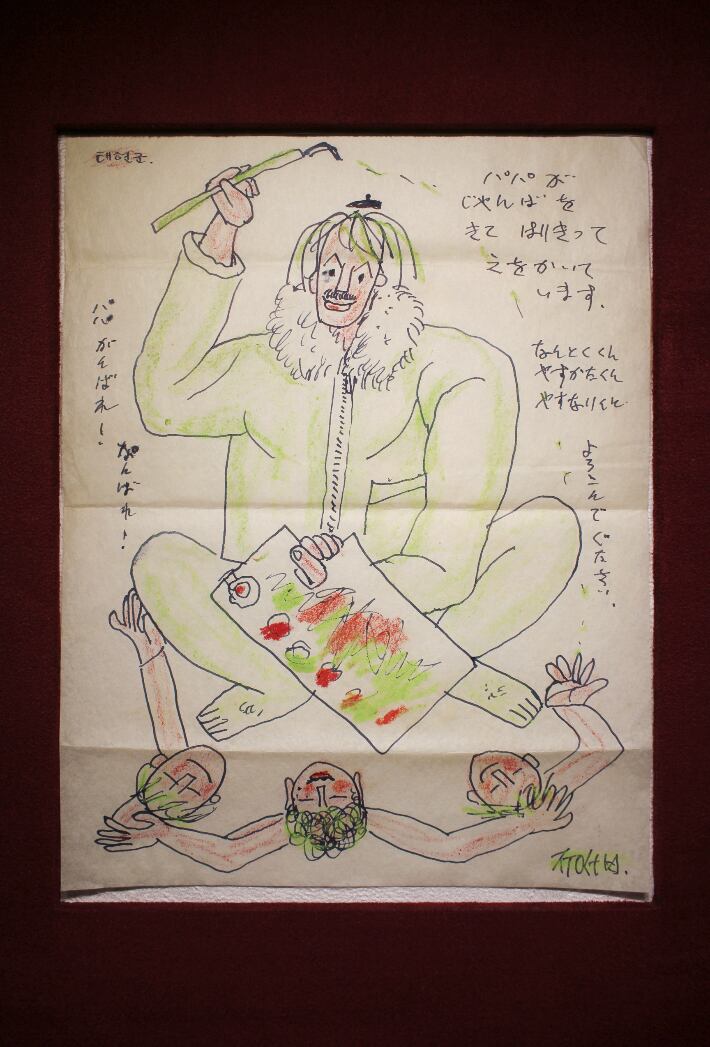 태현군.
パパが
じゃんばを
きて はりきって
えをかいて
います.
やすかたくん
やすなりくん
よろこんでください.
パパ がんばれ!
がんばれ!
ㅈㅜㅇㅅㅓㅂ.